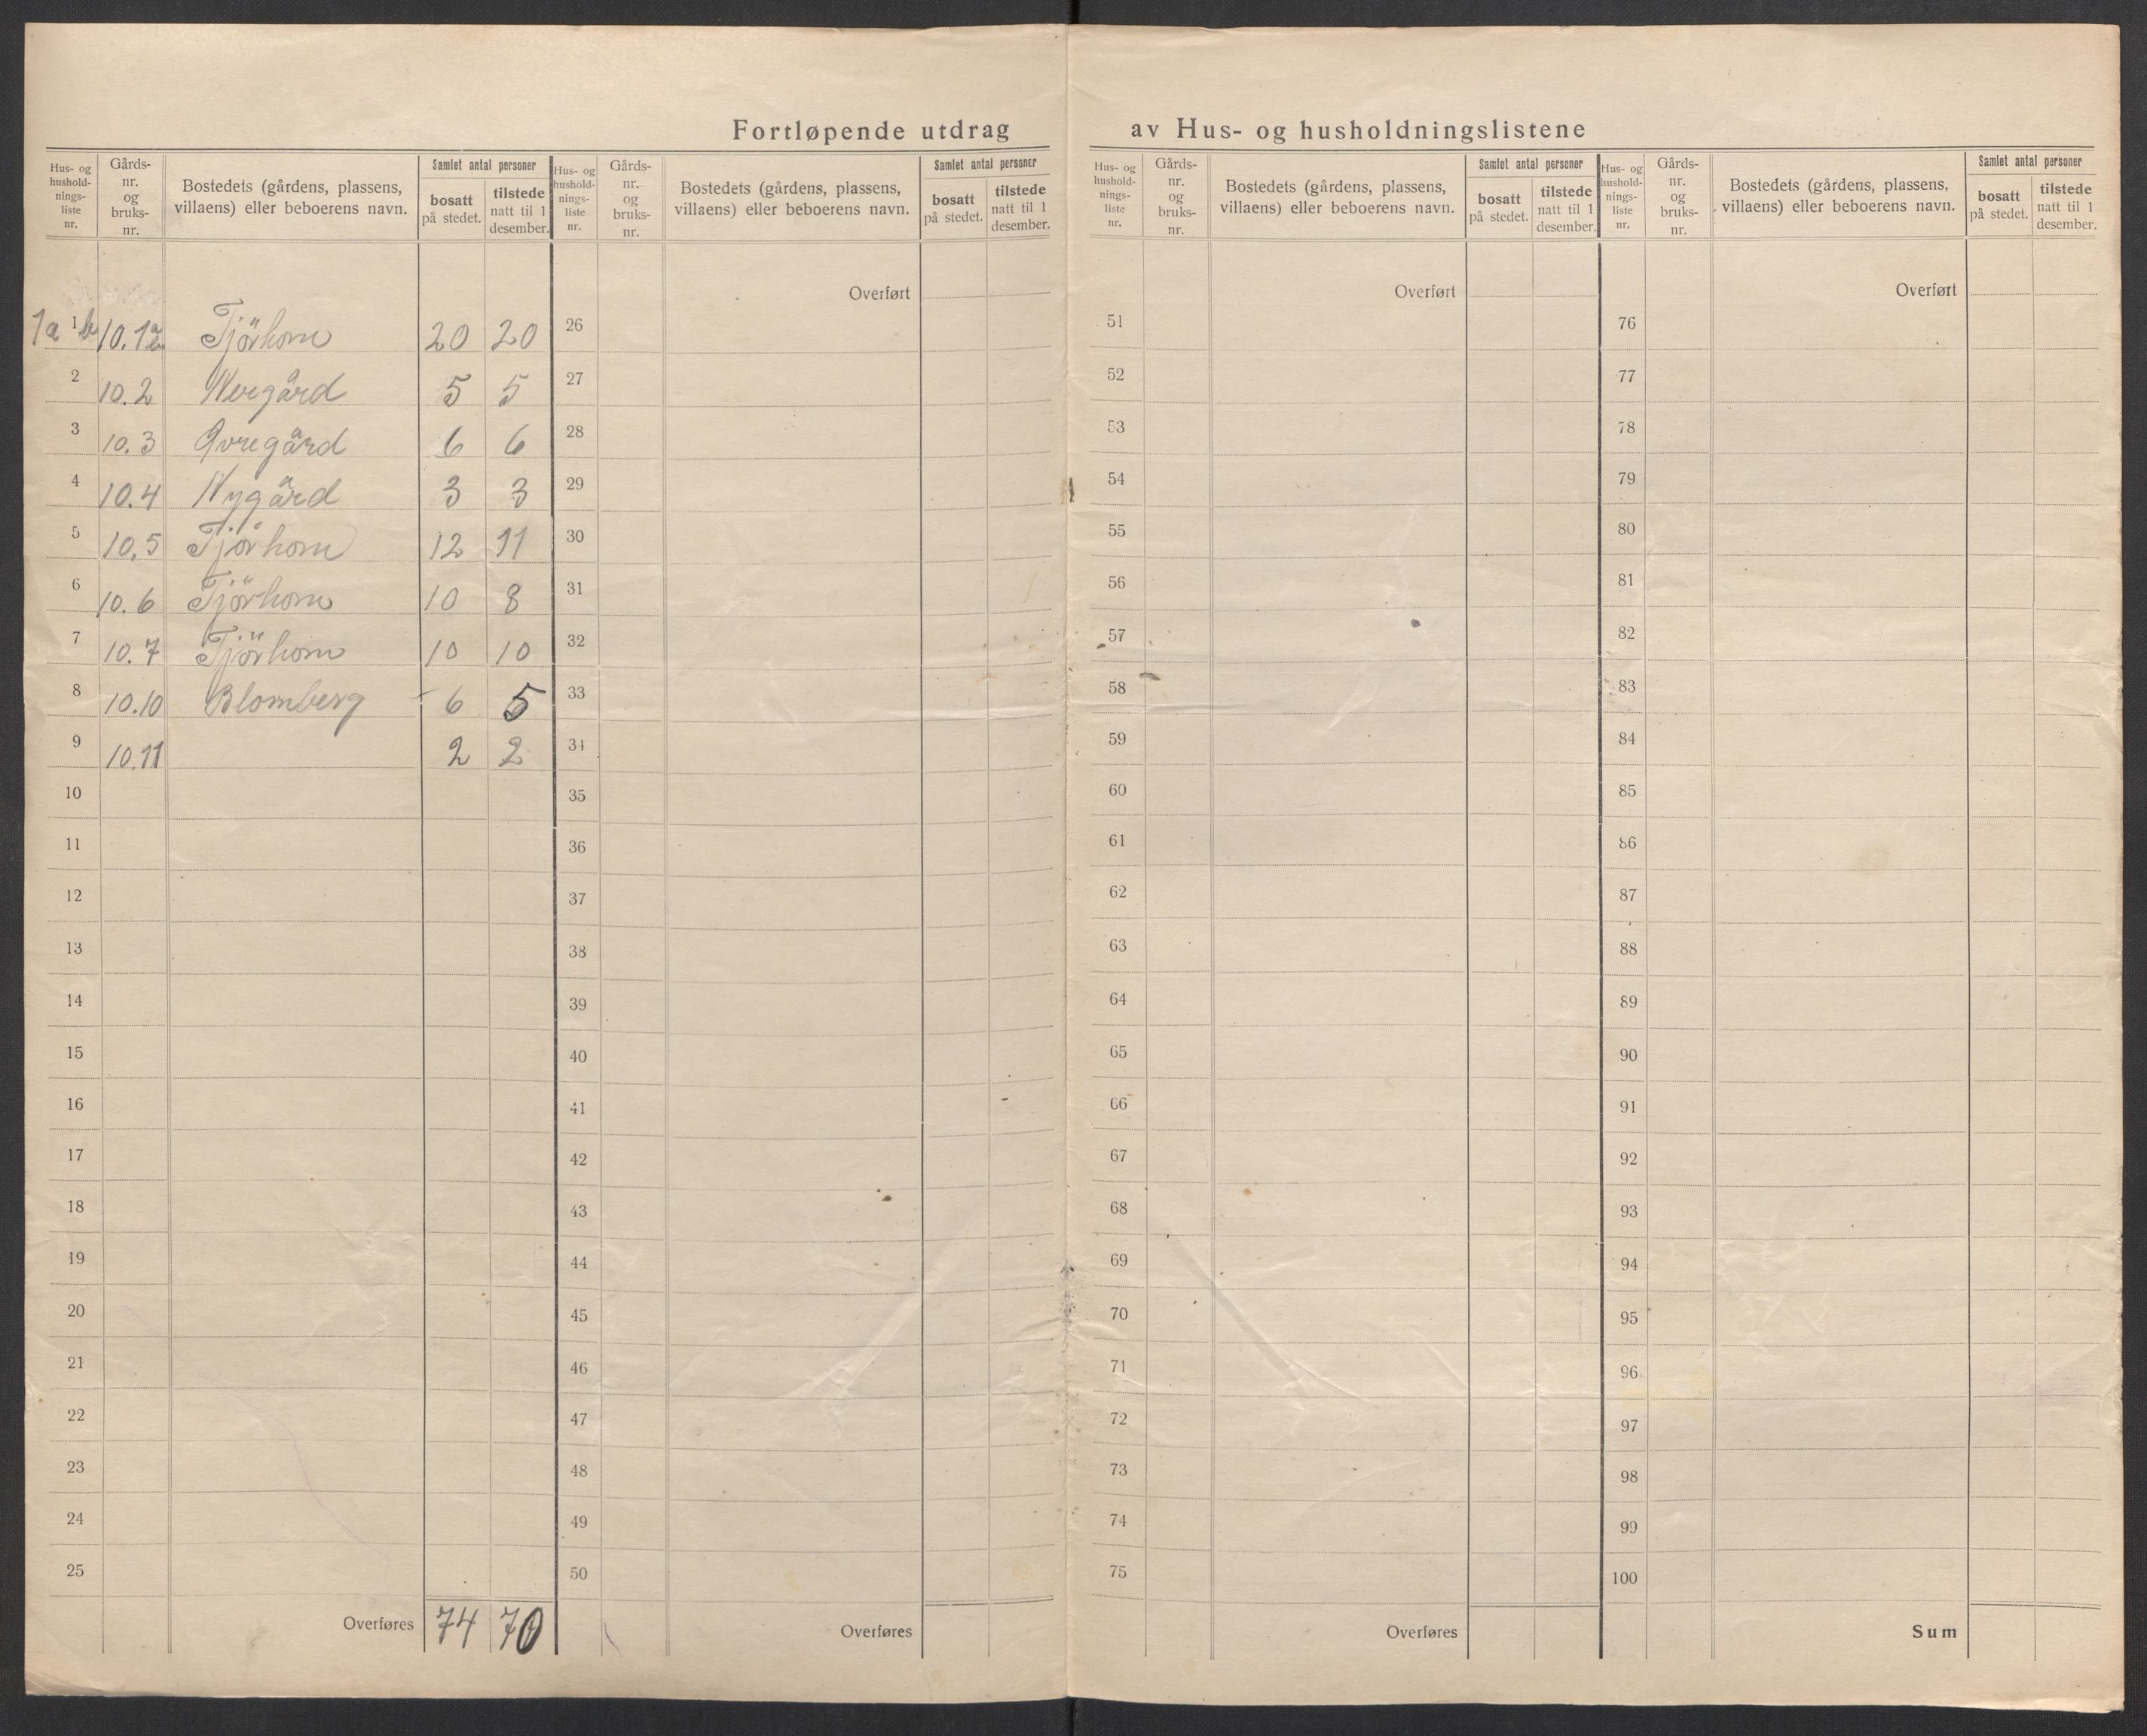 Fortløpende utdrag av Hus- og husholdningslistene
Hus- og hushold-nings-liste nr. Gårds-nr. og bruks-nr. Bostedets (gårdens, plassens, villaens) eller beboerens navn. Samlet antal personer bosatt på stedet. tilstede natt til 1 desember.
1a 1 b 10.1 Tjörhom 20 20
2 10.2 Nergård 5 5
3 10.3 Øvregård 6 6
4 10.4 Nygård 3 3
5 10.5 Tjörhom 12 11
6 10.6 Tjörhom 10 8
7 10.7 Tjörhom 10 10
8 10.10 Blomberg 6 5
9 10.11 2 2
10
11
12
13
14
15
16
17
18
19
20
21
22
23
24
25
Overføres 74 70
Hus- og hushold-nings-liste nr. Gårds-nr. og bruks-nr. Bostedets (gårdens, plassens, villaens) eller beboerens navn. Samlet antal personer bosatt på stedet. tilstede natt til 1 desember.
Overført
26
27
28
29
30
31
32
33
34
35
36
37
38
39
40
41
42
43
44
45
46
47
48
49
50
Overføres
Hus- og hushold-nings-liste nr. Gårds-nr. og bruks-nr. Bostedets (gårdens, plassens, villaens) eller beboerens navn. Samlet antal personer bosatt på stedet. tilstede natt til 1 desember.
Overført
51
52
53
54
55
56
57
58
59
60
61
62
63
64
65
66
67
68
69
70
71
72
73
74
75
Overføres
Hus- og hushold-nings-liste nr. Gårds-nr. og bruks-nr. Bostedets (gårdens, plassens, villaens) eller beboerens navn. Samlet antal personer bosatt på stedet. tilstede natt til 1 desember.
Overført
76
77
78
79
80
81
82
83
84
85
86
87
88
89
90
91
92
93
94
95
96
97
98
99
100
Sum